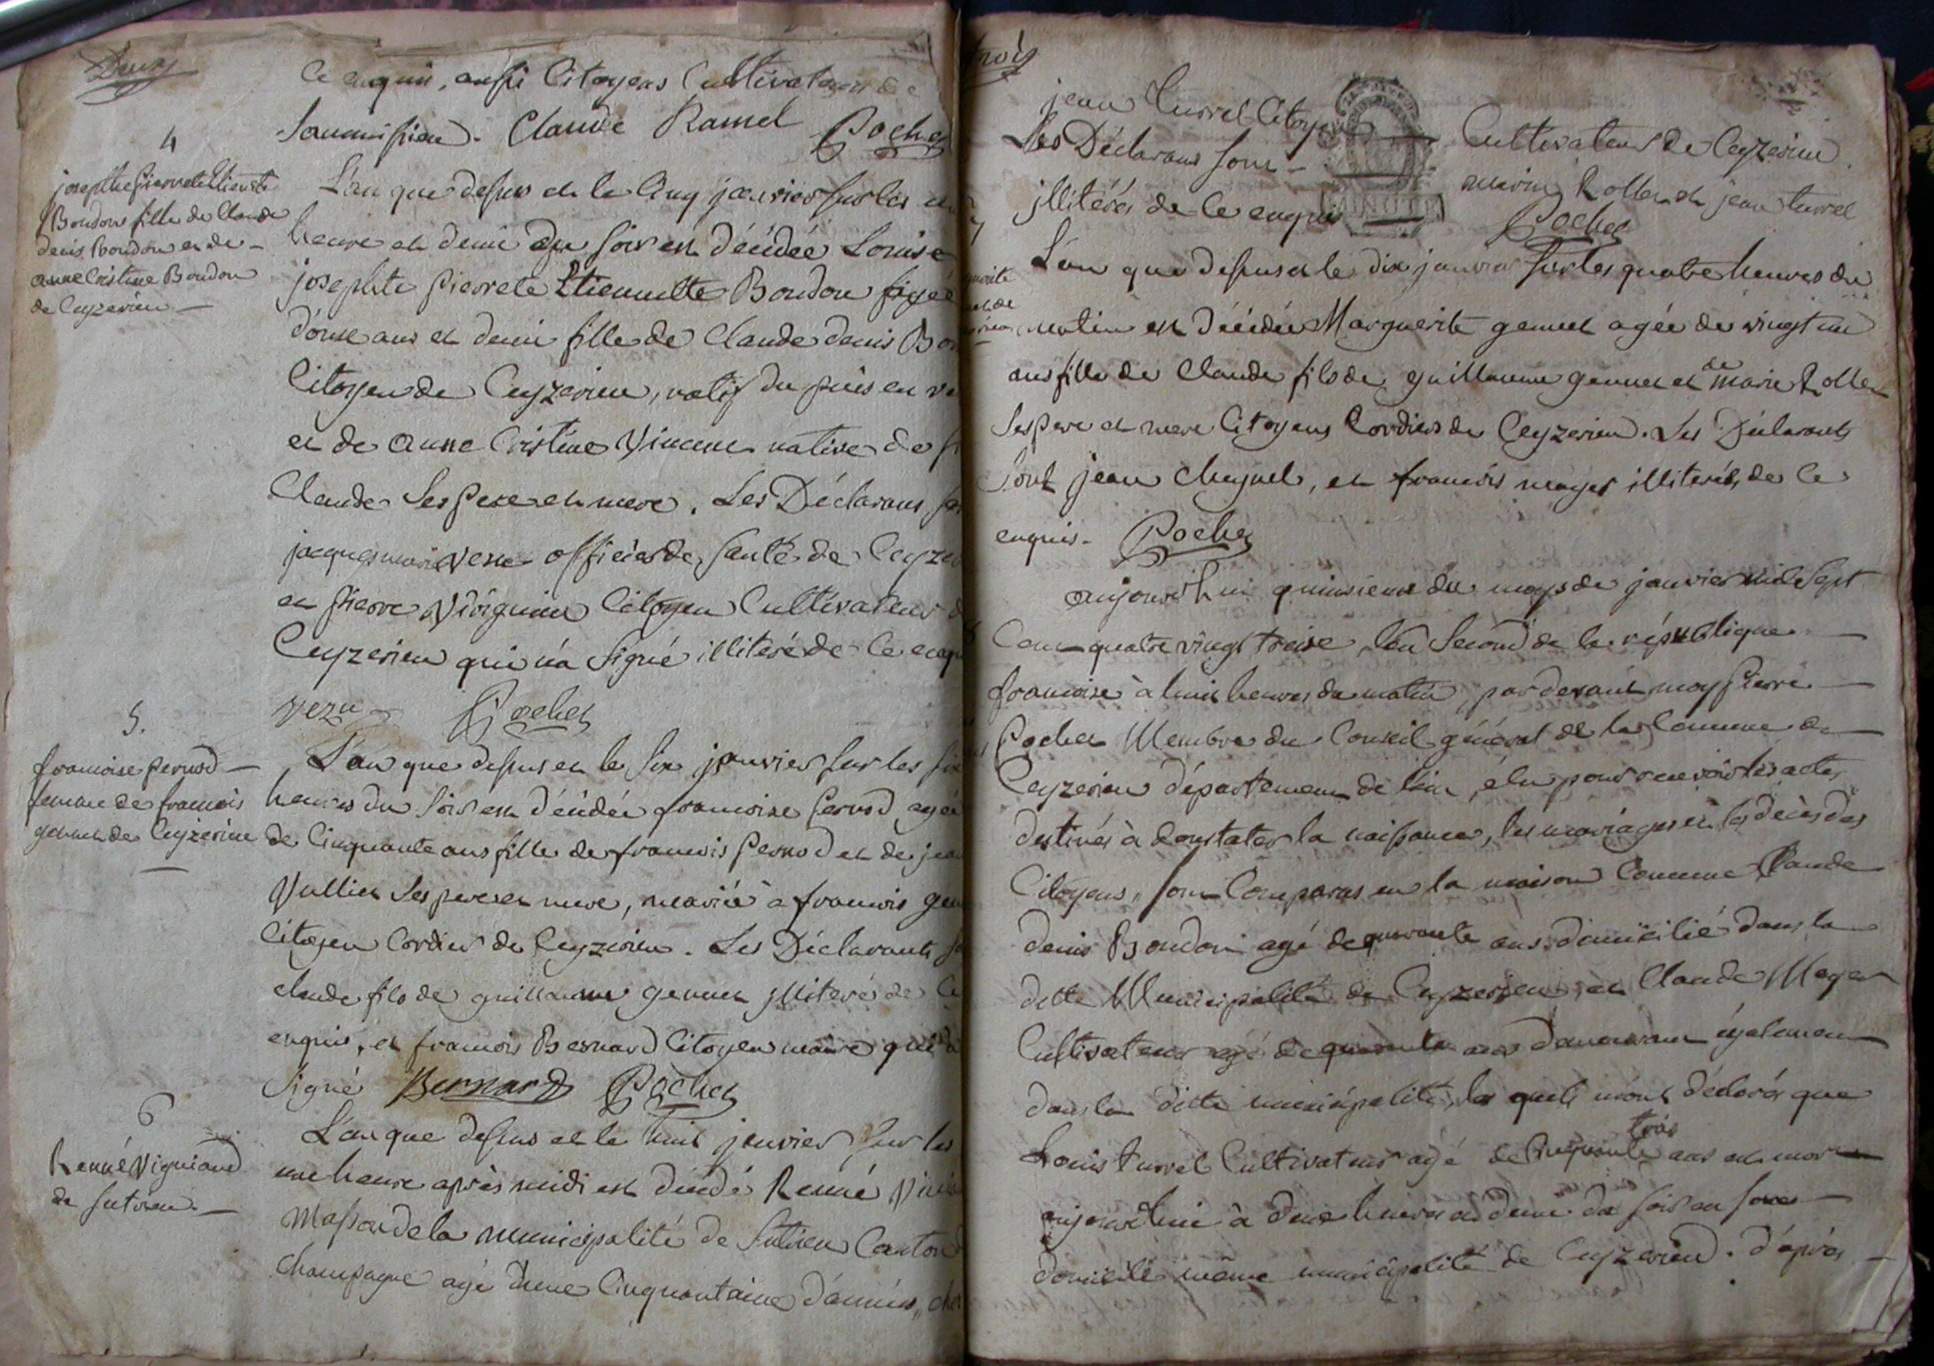 Deux
Ce enquis, aussi Citoyens Cultivateurs de
Soumission. Claude Ramel Pochet
4
josephte pierrete Etienette
Boudon fille de Claude
denis Boudon et de
anne Cristine Boudon
de Ceyzerieu
L'an que dessus et le Cinq janvier sur les
heure et demi du soir est décédée Louise
josephte pierrete Etiennette Boudon agée
d'onze ans et demi fille de Claude denis
Citoyen de Ceyzerieu, natif du puis en
et de anne Cristine Vincent native de
Claude Ses Pere et mere. Les Déclarans
jacques marie vezu officier de Santé de
et pierre Virignieu Citoyen Cultivateur
Ceyzerieu qui n'a Signé illiteré de Ce
vezu Pochet
5.
francoise pernod
femme de francois
genuet de Ceyzerieu
L'an que dessus et le Six janvier sur les
heures du Soir est décédée francoise Pernod agée
de Cinquante ans fille de francois Pernod et de
Vulliet Ses pere et mere, mariée à francois
Citoyen Cordier de Ceyzerieu. Les Déclarants
claude fils de guillaume genuet jlliteré de
enquis, et francois Bernard Citoyen maire qui a
Signé Bernard Pochet
6
Renné Vigniand
de Sutrieu.
L'an que dessus et le huit janvier, Sur les
une heure après midi est décédé Renné
Masson de la municipalité de Sutrieu Canton
Champagne agé d'une Cinquantaine d'années,
trois
jean Turrel Citoyen Cultivateur de Ceyzerieu
Les Déclarans Sont Rollet et jean turrel
jllitérés de Ce enquis Pochet
7
L'an que dessus et le dix janvier Sur les quatre heures du
matin est décédée Marguerite genuet agée de vingt un
ans fille de Claude fils de guillaume genuet et de marie Rollet
Ses Pere et mere Citoyens Cordiers de Ceyzerieu. Les Déclarants
Sont jean , et francois illiterés de Ce
enquis. Pochet
aujourd'hui quinsieme du moys de janvier mil Sept
Cent quatre vingt treise, l'an Second de la république
francoise à huit heures du matin, par devant moy Pierre
Pochet Membre du Conseil général de la Commune de
Ceyzerieu département de l'ain, élu pour recevoir les actes
destinés à Constater la naissance, les mariages et les décès des
Citoyens, sont Comparus en la maison Commune Claude
denis Boudon agé de quarante ans domicilié dans la
ditte Municipalité de Ceyzerieu, et Claude
Cultivateur agé de quarante ans demeurant également
dans la ditte municipalité, les quels m'ont déclarés que
trois
Louis turrel Cultivateur agé de Cinquante ans est mort
aujourd'hui à heures et demi du soir en son
domicile même municipalité de Ceyzerieu. d'après